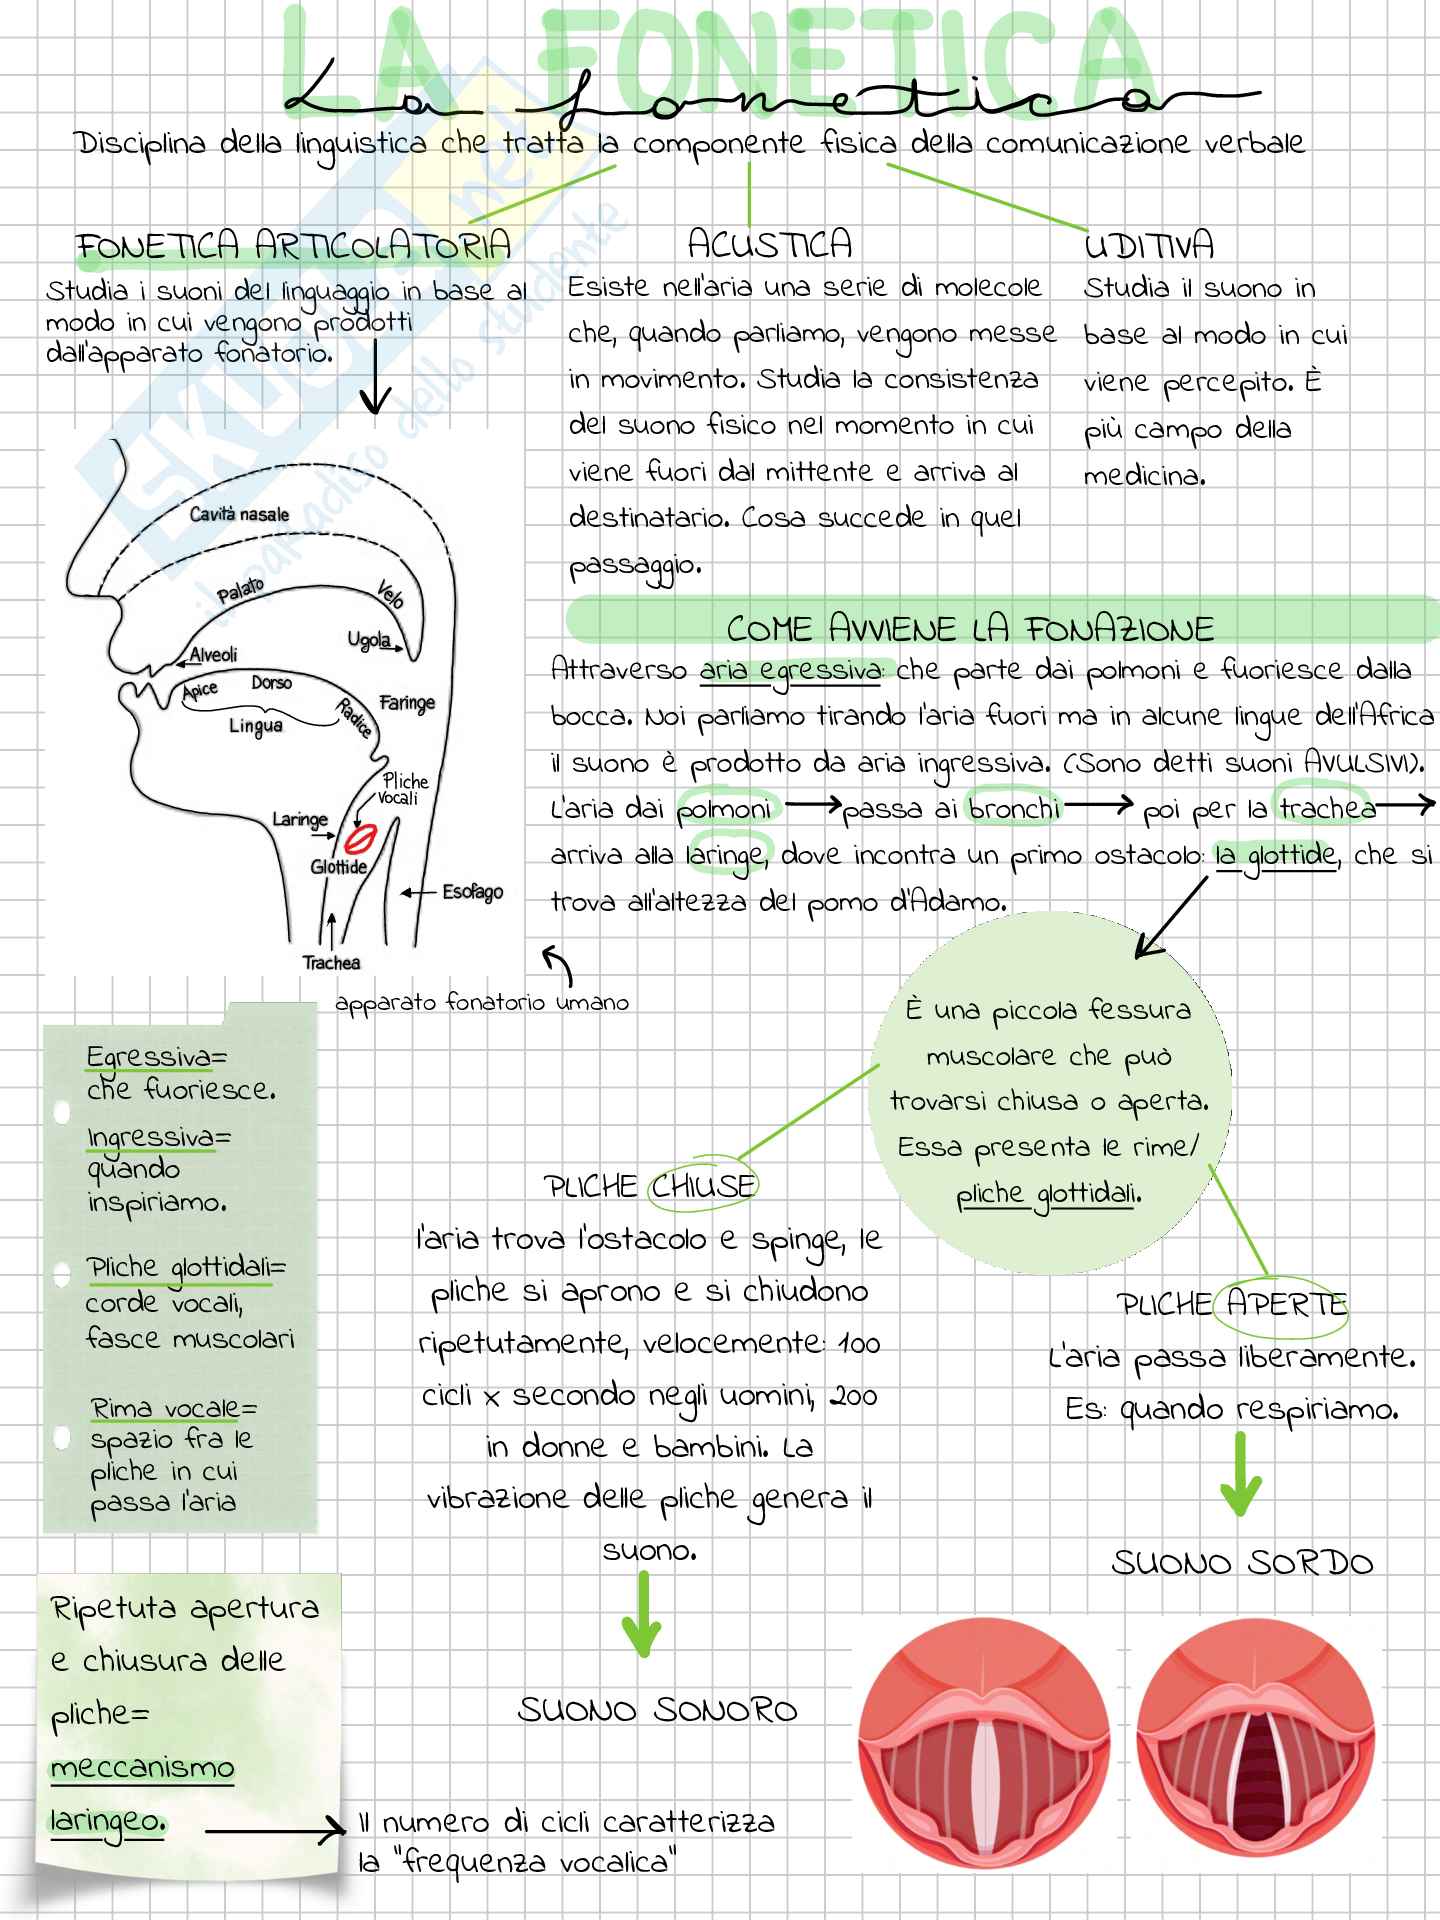 LA FONETICA
La fonetica
Disciplina della linguistica che tratta la componente fisica della comunicazione verbale
FONETICA ARTICOLATORIA
Studia i suoni del linguaggio in base al
modo in cui vengono prodotti
dall'apparato fonatorio.
ACUSTICA
Esiste nell'aria una serie di molecole
che, quando parliamo, vengono messe
in movimento. Studia la consistenza
del suono fisico nel momento in cui
viene fuori dal mittente e arriva al
destinatario. Cosa succede in quel
passaggio.
UDITIVA
Studia il suono in
base al modo in cui
viene percepito. È
più campo della
medicina.
SKUOLA.net
il paradiso dello studente
Cavità nasale
Palato
Velo
Ugola
Alveoli
Apice
Dorso
Radice
Lingua
Faringe
Pliche
Vocali
Laringe
Glottide
Esofago
Trachea
apparato fonatorio umano
COME AVVIENE LA FONAZIONE
Attraverso aria egressiva: che parte dai polmoni e fuoriesce dalla
bocca. Noi parliamo tirando l'aria fuori ma in alcune lingue dell'Africa
il suono è prodotto da aria ingressiva. (Sono detti suoni AVULSIVI).
L'aria dai polmoni passa ai bronchi poi per la trachea
arriva alla laringe, dove incontra un primo ostacolo: la glottide, che si
trova all'altezza del pomo d'Adamo.
È una piccola fessura
muscolare che può
trovarsi chiusa o aperta.
Essa presenta le rime/
pliche glottidali.
Egressiva=
che fuoriesce.
Ingressiva=
quando
inspiriamo.
Pliche glottidali=
corde vocali,
fasce muscolari
Rima vocale=
spazio fra le
pliche in cui
passa l'aria
PLICHE CHIUSE
l'aria trova l'ostacolo e spinge, le
pliche si aprono e si chiudono
ripetutamente, velocemente: 100
cicli x secondo negli uomini, 200
in donne e bambini. La
vibrazione delle pliche genera il
suono.
SUONO SONORO
PLICHE APERTE
L'aria passa liberamente.
Es: quando respiriamo.
SUONO SORDO
Ripetuta apertura
e chiusura delle
pliche=
meccanismo
laringeo.
Il numero di cicli caratterizza
la "frequenza vocalica"